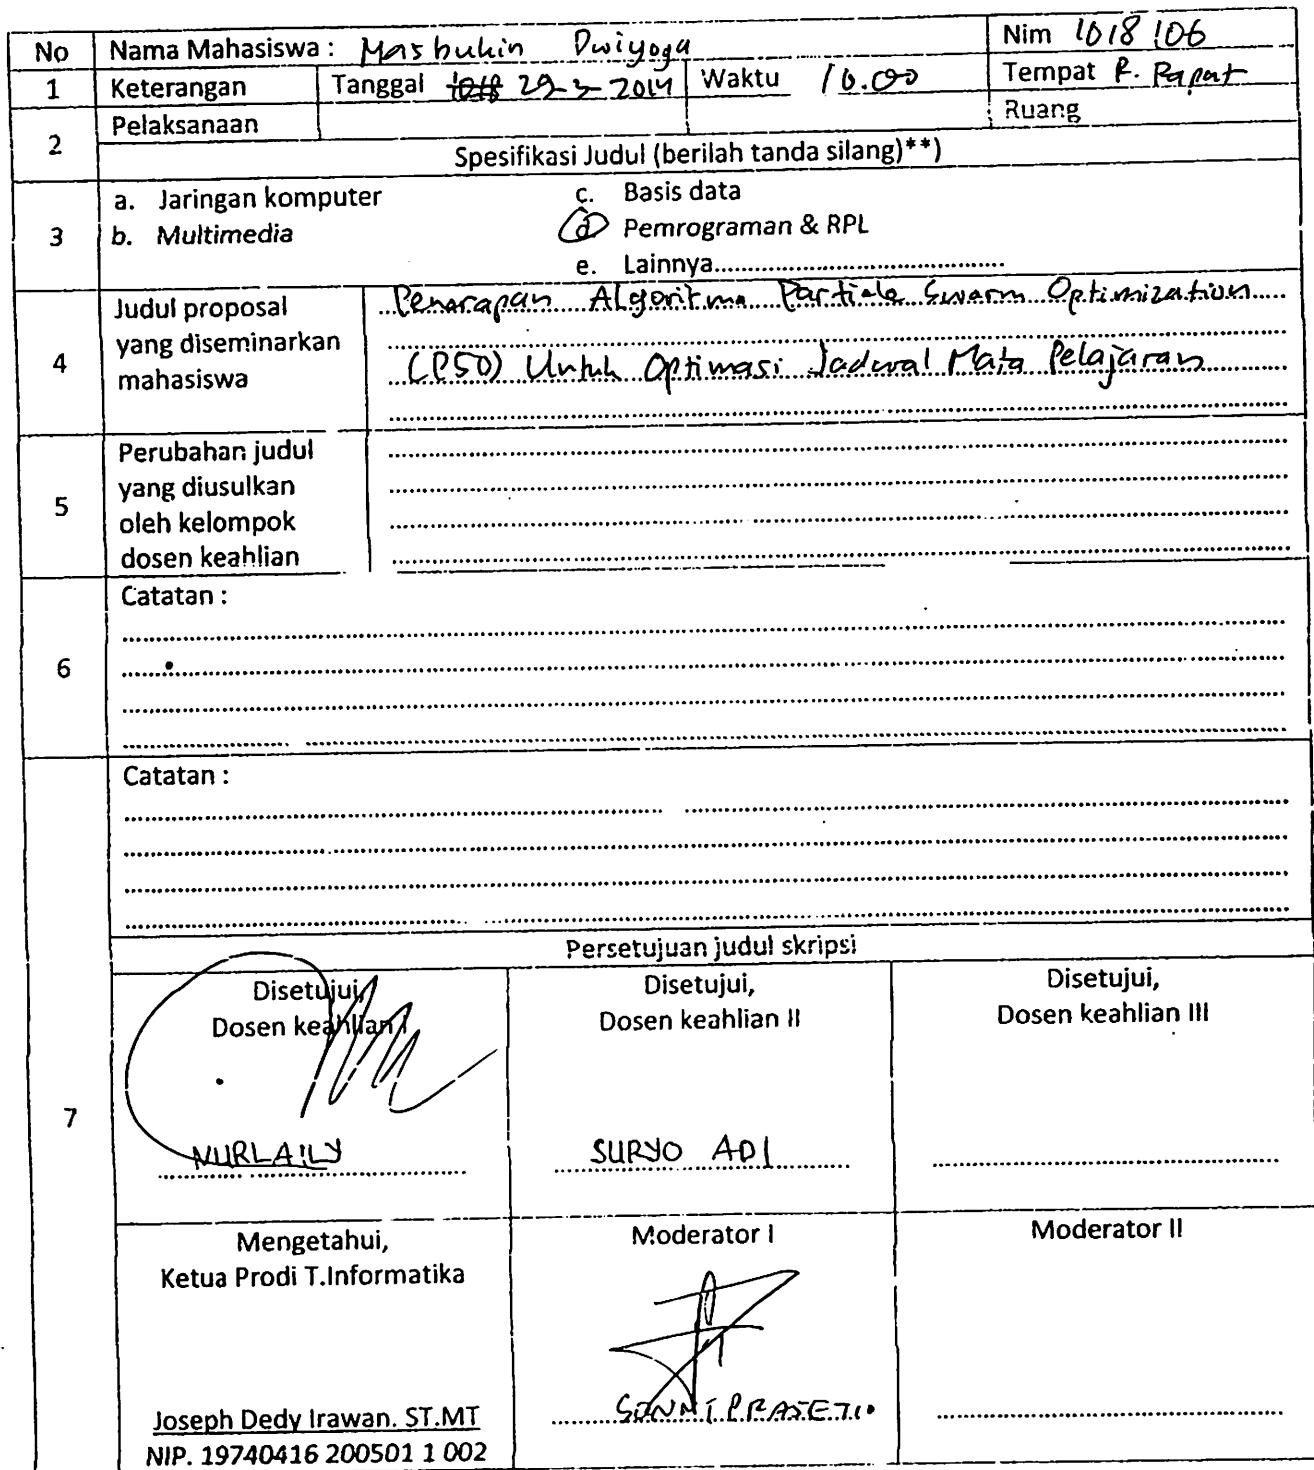 No Nama Mahasiswa : Masbukin Dwiyoga Nim 1018106
1 Keterangan Tanggal 29-3-2014 Waktu 10.00 Tempat R. Rapat
2 Pelaksanaan Ruang
Spesifikasi Judul (berilah tanda silang)**)
3 a. Jaringan komputer c. Basis data
b. Multimedia d Pemrograman & RPL
e. Lainnya
4 Judul proposal yang diseminarkan mahasiswa
Penerapan Algoritma Particle Swarm Optimization
(PSO) Untuk Optimasi Jadwal Mata Pelajaran
5 Perubahan judul
yang diusulkan
oleh kelompok
dosen keahlian
6 Catatan :
7 Catatan :
Persetujuan judul skripsi
Disetujui,
Dosen keahlian I
NURLAILY
Disetujui,
Dosen keahlian II
SURYO ADI
Disetujui,
Dosen keahlian III
Mengetahui,
Ketua Prodi T.Informatika
Joseph Dedy Irawan. ST.MT
NIP. 19740416 200501 1 002
Moderator I
SONNY PRASETIO
Moderator II